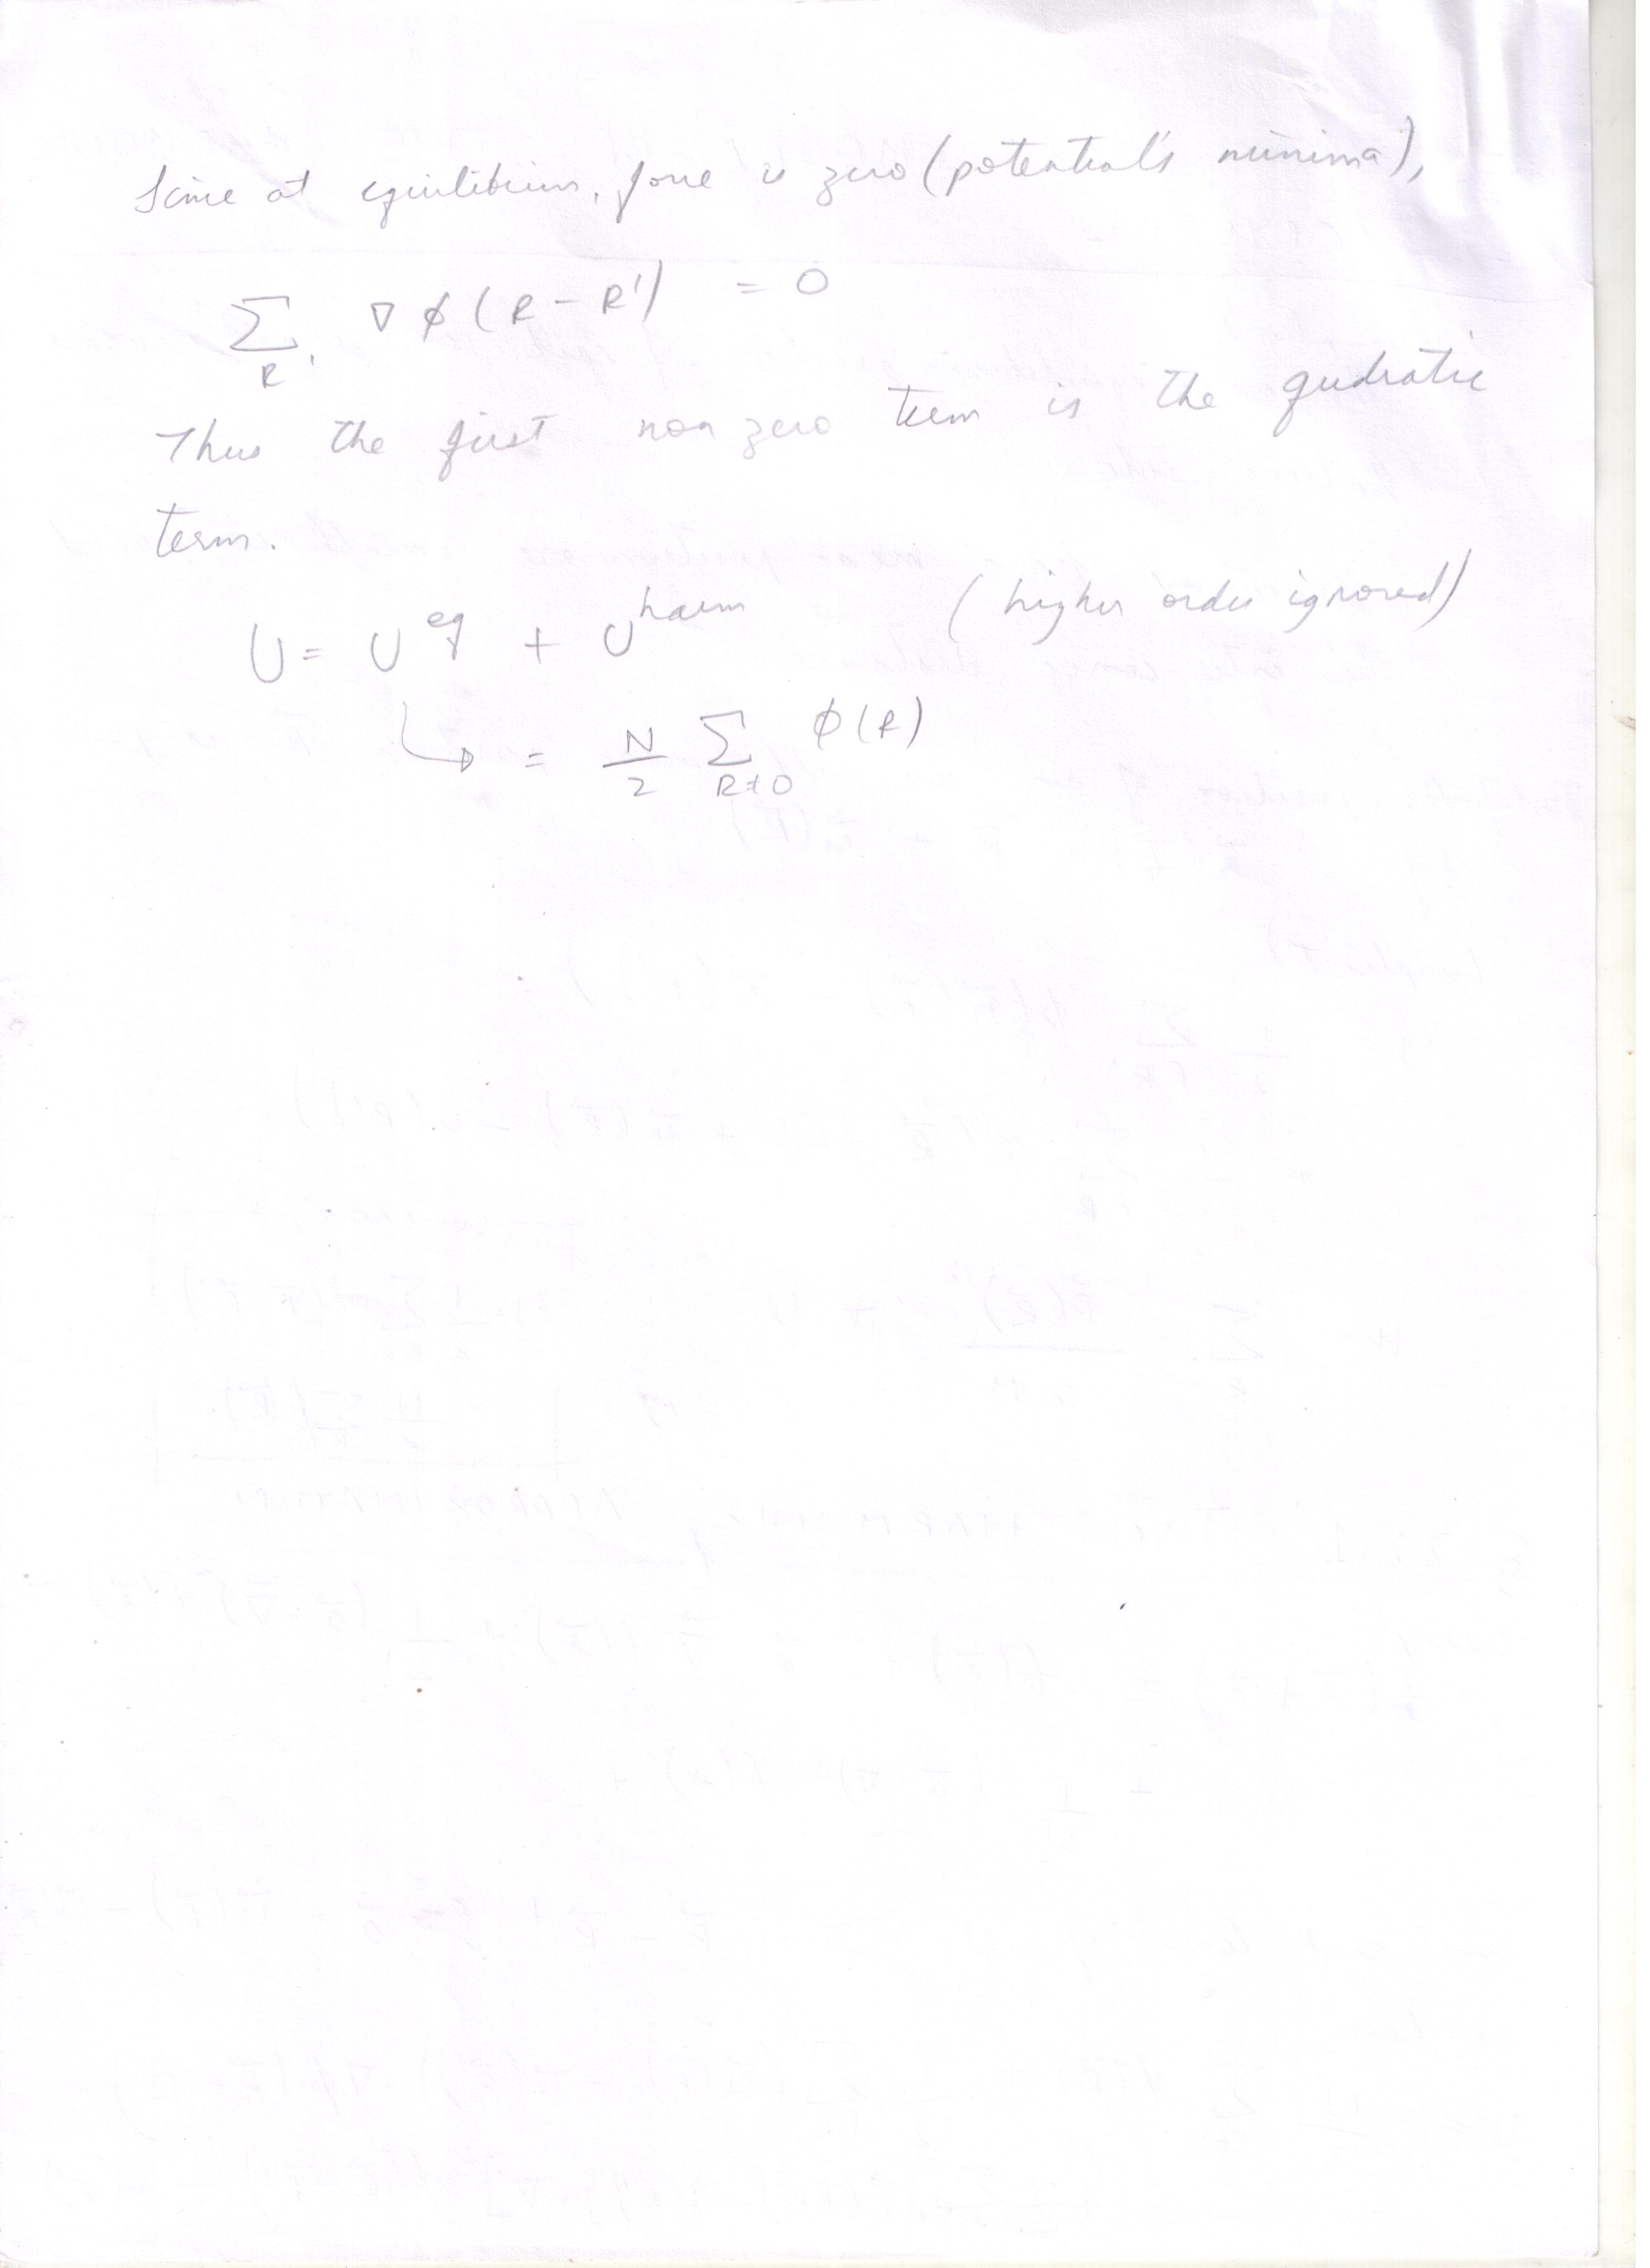 Since at equilibrium, force is zero (potential's minima),
∑ ∇ϕ(R-R') = 0
R'
Thus the first non zero term is the qudratic
term.
U = U^eq + U^harm (higher order ignored)
↳ = N/2 ∑ ϕ(R)
R≠0